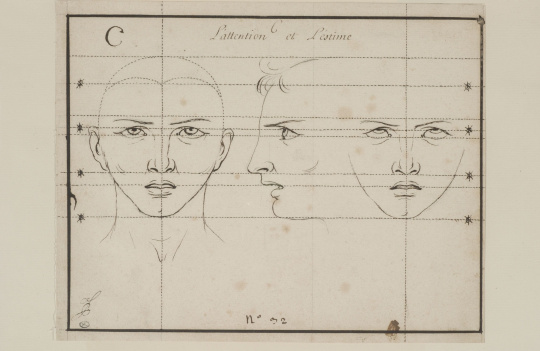 C
L'attention et L'estime
C
N° 32